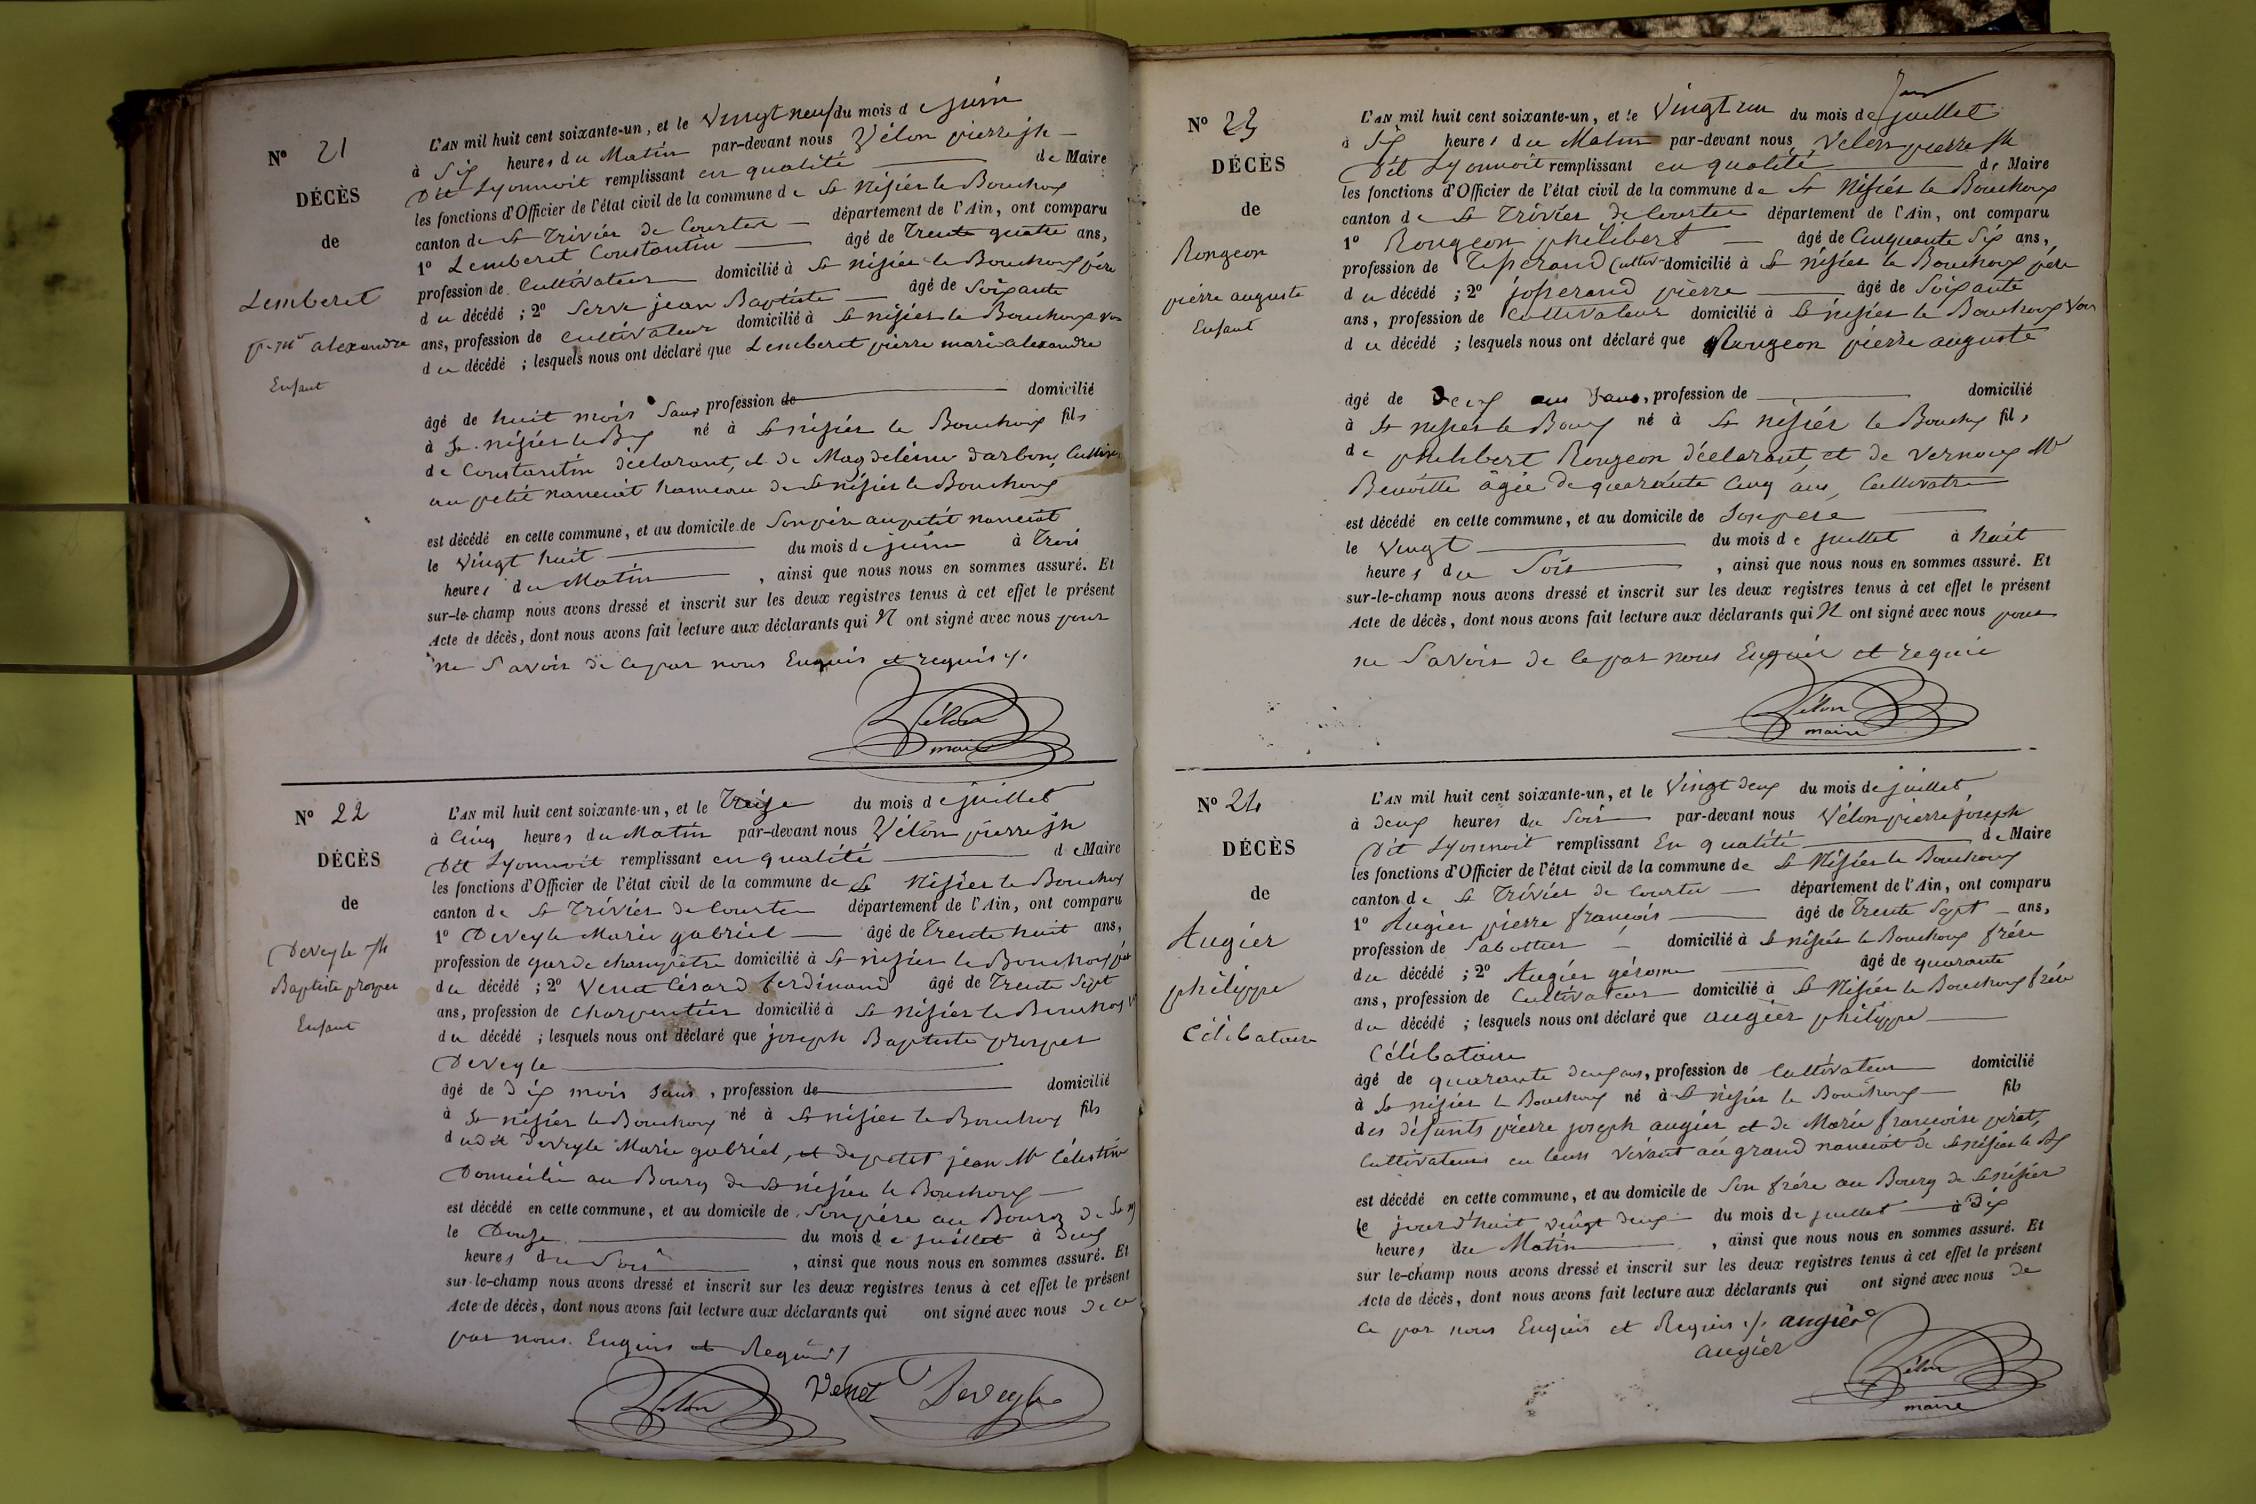 N° 21
DÉCÈS
de
Lemberet
p.re m.ie alexandre
Enfant
L'AN mil huit cent soixante-un, et le Vingt neuf du mois de juin
à Six heures du Matin par-devant nous Vélon pierre jh
Dit Lyonnoit remplissant en qualité de Maire
les fonctions d'Officier de l'état civil de la commune de St Nisier le Bouchoux
canton de St Trivier de Courtes département de l'Ain, ont comparu
1° Lemberet Constantin âgé de Trente quatre ans,
profession de Cultivateur domicilié à St nisier le Bouchoux père
du décédé ; 2° Serve jean Baptiste âgé de Soixante
ans, profession de Cultivateur domicilié à St nisier le Bouchoux
du décédé ; lesquels nous ont déclaré que Lemberet pierre marie alexandre
âgé de huit mois Sans profession de domicilié
à St. nisier le Bx né à St nisier le Bouchoux fils
de Constantin déclarant, et de Magdeleine darbon,
au petit nanciat hameau de St nisier le Bouchoux
est décédé en cette commune, et au domicile de Son père au petit nanciat
le Vingt huit du mois de juin à Trois
heures du Matin , ainsi que nous nous en sommes assuré. Et
sur-le-champ nous avons dressé et inscrit sur les deux registres tenus à cet effet le présent
Acte de décès, dont nous avons fait lecture aux déclarants qui N ont signé avec nous pour
ne Savoir de ce par nous Enquis et requis ./.
Vélon
maire
N° 22
DÉCÈS
de
Deveyle jh
Baptiste prosper
Enfant
L'AN mil huit cent soixante-un, et le Treize du mois de juillet
à Cinq heures du Matin par-devant nous Vélon pierre jh
Dit Lyonnoit remplissant en qualité de Maire
les fonctions d'Officier de l'état civil de la commune de St Nisier le Bouchoux
canton de St Trivier de Courtes département de l'Ain, ont comparu
1° Deveyle Marie gabriel âgé de Trente huit ans,
profession de garde champêtre domicilié à St nisier le Bouchoux père
du décédé ; 2° Venet Césard ferdinand âgé de Trente Sept
ans, profession de Charpentier domicilié à St Nisier le Bouchoux
du décédé ; lesquels nous ont déclaré que joseph Baptiste prosper
Deveyle
âgé de Dix mois Sans , profession de domicilié
à St nisier le Bouchoux né à St nisier le Bouchoux fils
dudit Deveyle Marie gabriel, et de petit jean M.ie Célestine
Domicilié au Bourg de St nisier le Bouchoux
est décédé en cette commune, et au domicile de Son père au Bourg de St N
le Douze du mois de juillet à Deux
heures du Soir , ainsi que nous nous en sommes assuré. Et
sur-le-champ nous avons dressé et inscrit sur les deux registres tenus à cet effet le présent
Acte de décès, dont nous avons fait lecture aux déclarants qui ont signé avec nous De ce
par nous Enquis et Requis ./
Vélon Venet Deveyle
N° 23
DÉCÈS
de
Rongeon
pierre auguste
Enfant
L'AN mil huit cent soixante-un, et le Vingt un du mois de juillet
à Six heures du Matin par-devant nous Vélon pierre jh
Dit Lyonnoit remplissant en qualité de Maire
les fonctions d'Officier de l'état civil de la commune de St Nisier le Bouchoux
canton de St Trivier de Courtes département de l'Ain, ont comparu
1° Rongeon philibert âgé de Cinquante Six ans,
profession de Tisserand Cultiv domicilié à St nisier le Bouchoux père
du décédé ; 2° josserand pierre âgé de Soixante
ans, profession de Cultivateur domicilié à St nisier le Bouchoux Voi
du décédé ; lesquels nous ont déclaré que Rongeon pierre auguste
âgé de Deux ans Sans, profession de domicilié
à St nisier le Boux né à St nisier le Bouchoux fils
de philibert Rongeon déclarant, et de Vernoux M.ie
Benoitte âgée de quarante Cinq ans, Cultivatrice
est décédé en cette commune, et au domicile de Son père
le Vingt du mois de juillet à huit
heures du Soir , ainsi que nous nous en sommes assuré. Et
sur-le-champ nous avons dressé et inscrit sur les deux registres tenus à cet effet le présent
Acte de décès, dont nous avons fait lecture aux déclarants qui N ont signé avec nous pour
ne Savoir de ce par nous Enquis et requis
Vélon
maire
N° 24
DÉCÈS
de
Augier
philippe
Célibataire
L'AN mil huit cent soixante-un, et le Vingt deux du mois de juillet,
à deux heures du Soir par-devant nous Vélon pierre joseph
Dit Lyonnoit remplissant En qualité de Maire
les fonctions d'Officier de l'état civil de la commune de St Nisier le Bouchoux
canton de St Trivier de Courtes département de l'Ain, ont comparu
1° Augier pierre françois âgé de Trente Sept ans,
profession de Sabottier domicilié à St nisier le Bouchoux frère
du décédé ; 2° Augier gérome âgé de quarante
ans, profession de Cultivateur domicilié à St Nisier le Bouchoux frère
du décédé ; lesquels nous ont déclaré que augier philippe
Célibataire
âgé de quarante deux ans, profession de Cultivateur domicilié
à St nisier le Bouchoux né à St nisier le Bouchoux fils
des défunts pierre joseph augier et de Marie françoise pirat,
Cultivateurs en leur Vivant au grand nanciat de St nisier le Bx
est décédé en cette commune, et au domicile de Son frère au Bourg de St nisier
le jourd'huit vingt deux du mois de juillet à Dix
heures du Matin , ainsi que nous nous en sommes assuré. Et
sur le-champ nous avons dressé et inscrit sur les deux registres tenus à cet effet le présent
Acte de décès, dont nous avons fait lecture aux déclarants qui ont signé avec nous de
Ce par nous Enquis et Requis ./. augier
augier
Vélon
maire